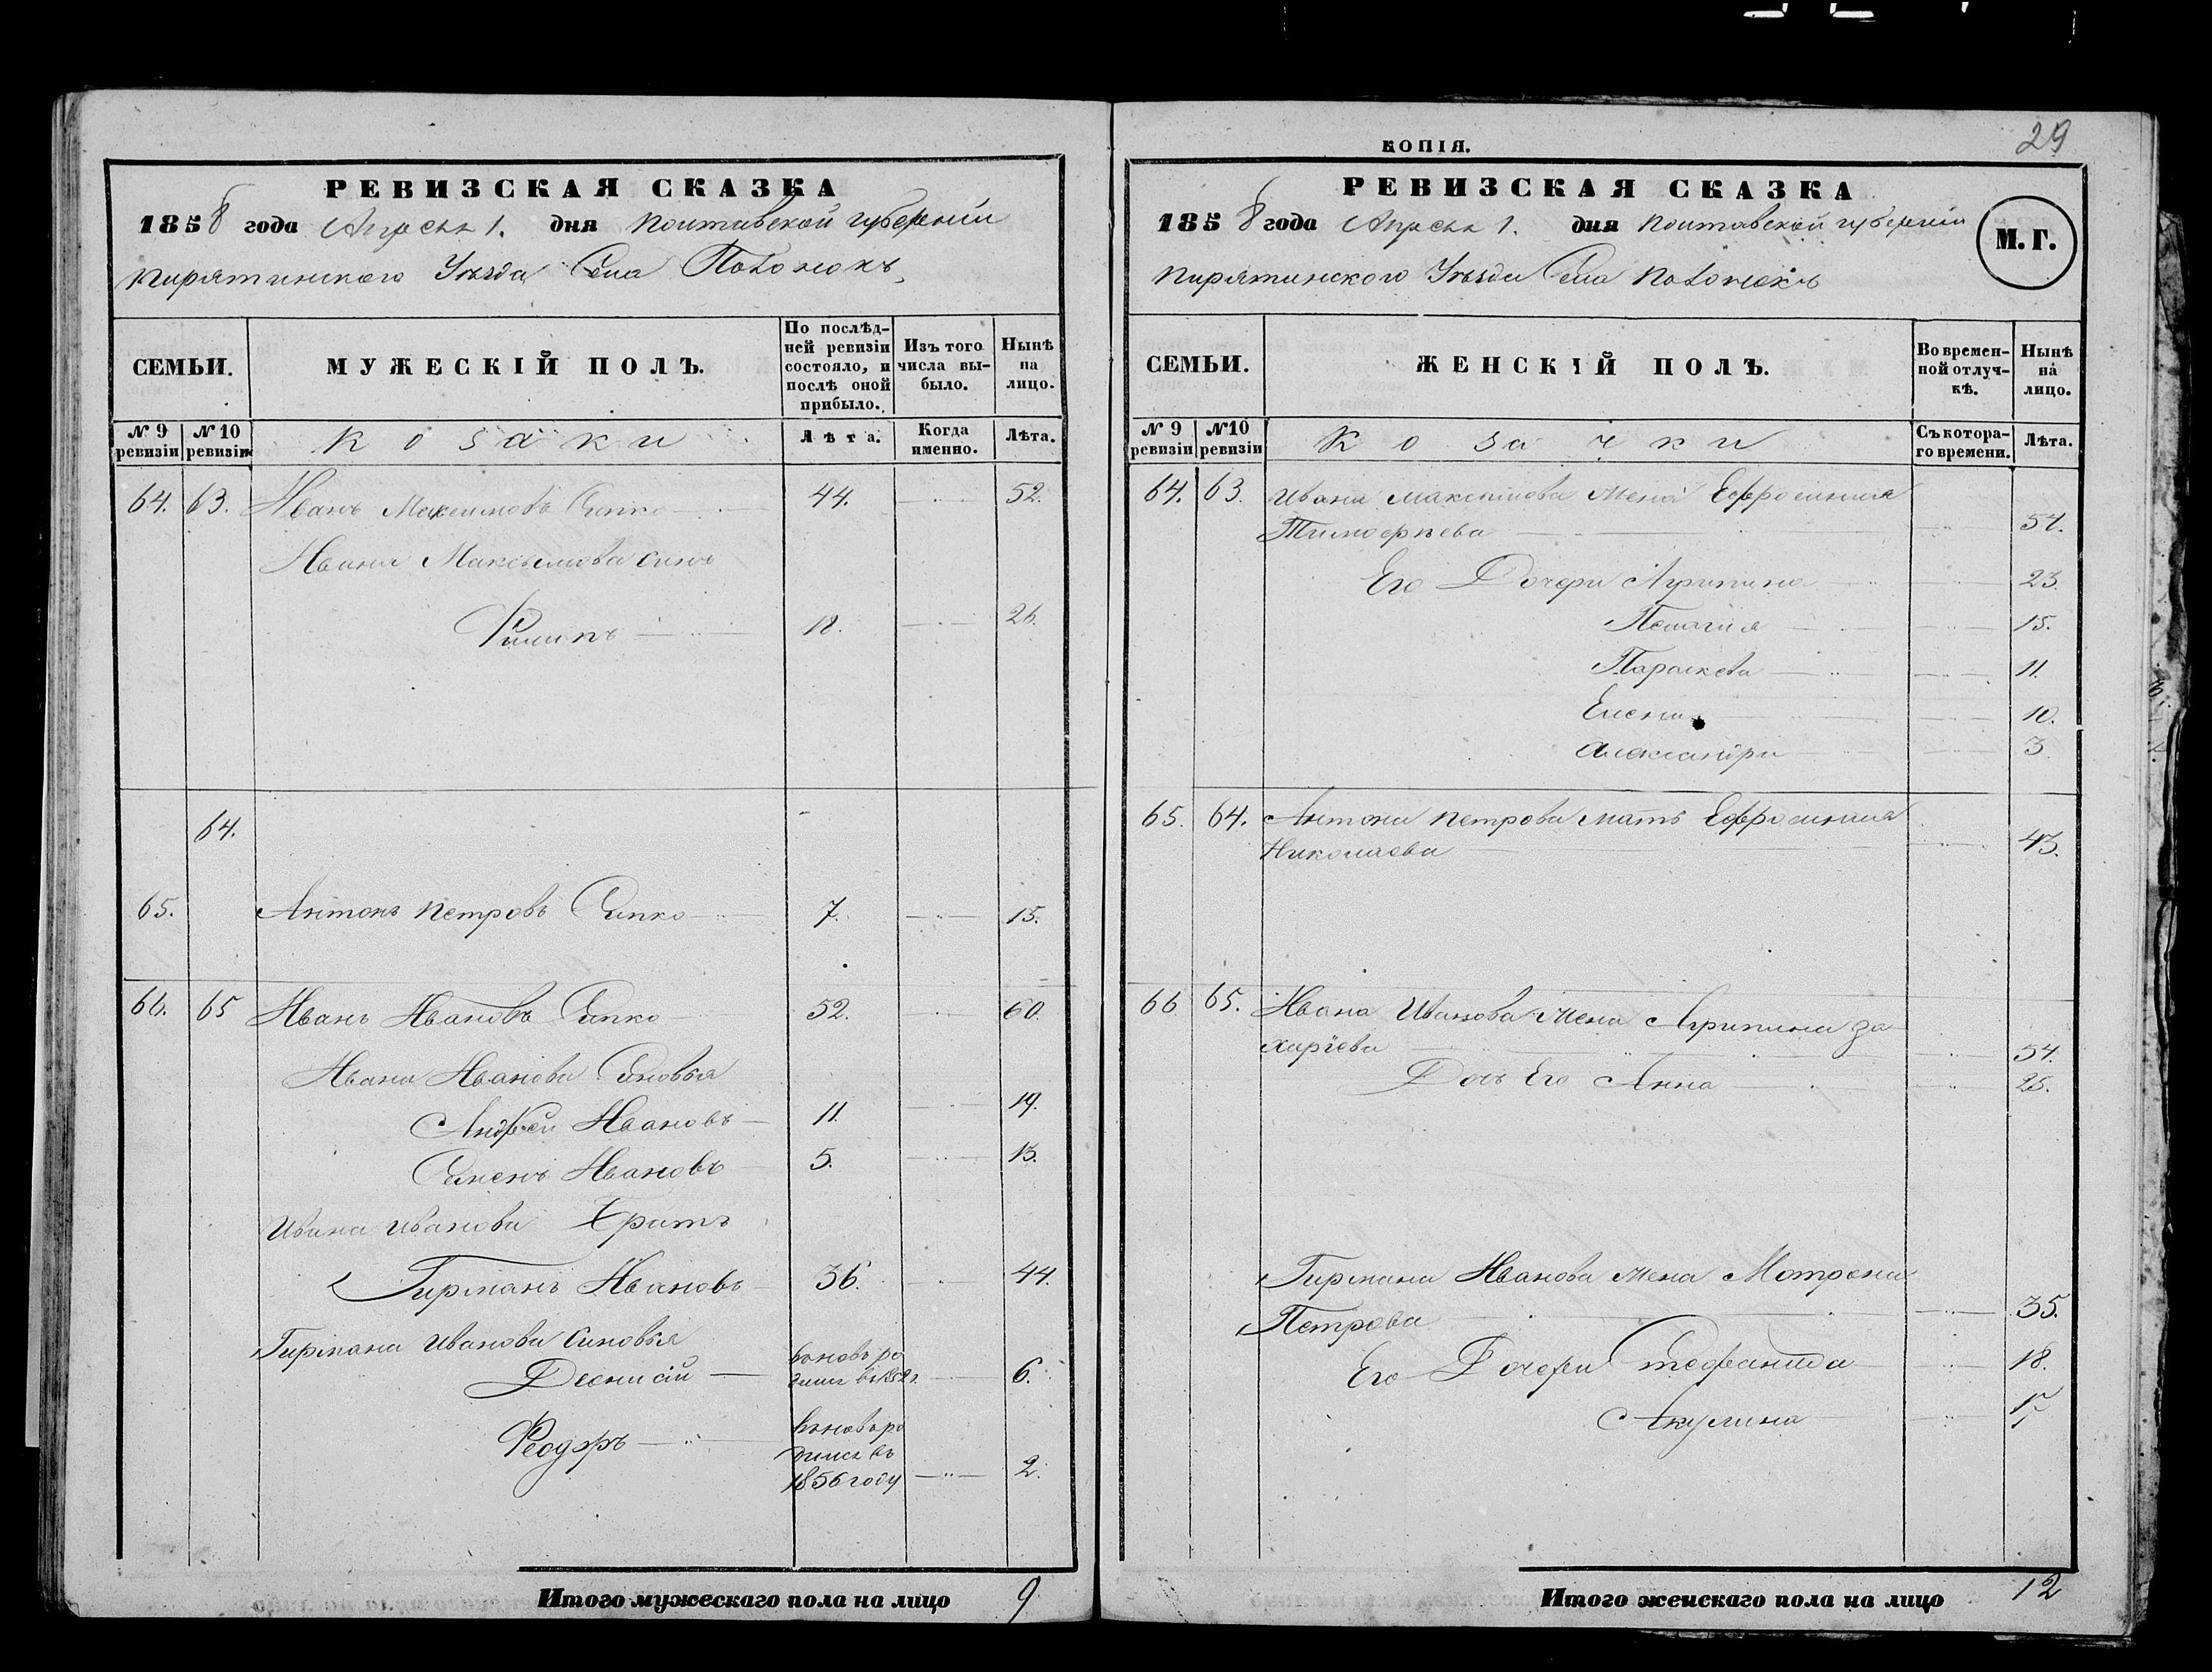 РЕВИЗСКАЯ СКАЗКА
1858 года Апреля 1. дня Полтавской губерніи
Пирятинского Уѣзда Села
СЕМЬИ.
МУЖЕСКІЙ ПОЛЪ.
По послѣд-
ней ревизіи
состояло, и
послѣ оной
прибыло.
Изъ того
числа вы-
было.
Нынѣ
на
лицо.
№ 9
ревизіи
№ 10
ревизіи
Козаки
Лѣта.
Когда
именно.
Лѣта.
64. 63. Иванъ Максимовъ 44. 52.
Ивана Максимова сынъ
Филипъ 18. 26.
64.
65. Антонъ Петровъ 7. 15.
66. 65 Иванъ Ивановъ 52. 60.
Ивана Иванова Сыновья
Андрей Ивановъ 11. 19.
Семенъ Ивановъ 5. 13.
Ивана Иванова Братъ
Гирманъ Ивановъ 36. 44.
Гирмана Иванова Сыновья
Деонисій вновь ро
дилс въ 1852 г. 6.
Феодоръ вновь ро
дилсь въ
1856 году 2.
Итого мужескаго пола на лицо 9
КОПІЯ.
29
РЕВИЗСКАЯ СКАЗКА
1858 года Апреля 1. дня Полтавской губерніи
М. Г.
Пирятинского Уѣзда Села
СЕМЬИ.
ЖЕНСКІЙ ПОЛЪ.
Во времен-
ной отлуч-
кѣ.
Нынѣ
на
лицо.
№ 9
ревизіи
№10
ревизіи
Козачки
Съ котора-
го времени.
Лѣта.
64. 63. Ивана Максимова Жена Ефросинія
Тимофѣева 54.
Его Дочери Агрипина 23.
Пелагія 15.
Параскева 11.
Елена 10.
Александра 3.
65. 64. Антона Петрова мать Ефросинія
Николаева 43.
66 65. Ивана Иванова Жена Агрипина За
харіева 54.
Дочь Его Анна 25.
Гирмана Иванова Жена Мотрена
Петрова 35.
Его Дочери Стефанида 18.
Акулина
Итого женскаго пола на лицо 12